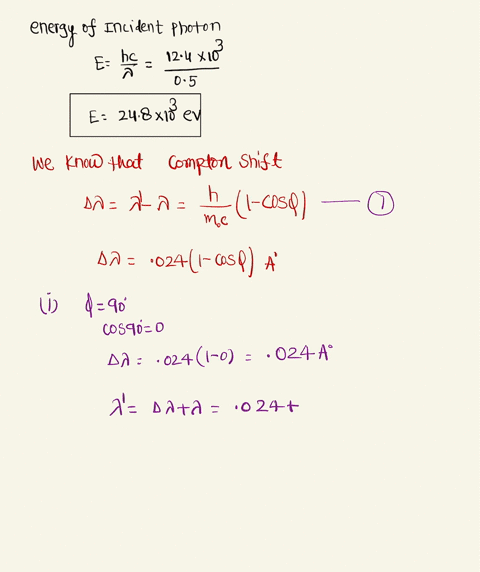 energy of Incident photon
E = hc/λ = 12.4 × 10³/0.5
E = 24.8 × 10³ eV
We know that Compton Shift
Δλ = λ' - λ = h/m₀c (1 - cosϕ) —— ①
Δλ = .024 (1 - cosϕ) A°
(i) ϕ = 90°
cos90° = 0
Δλ = .024 (1 - 0) = .024 A°
λ' = Δλ + λ = .024 +